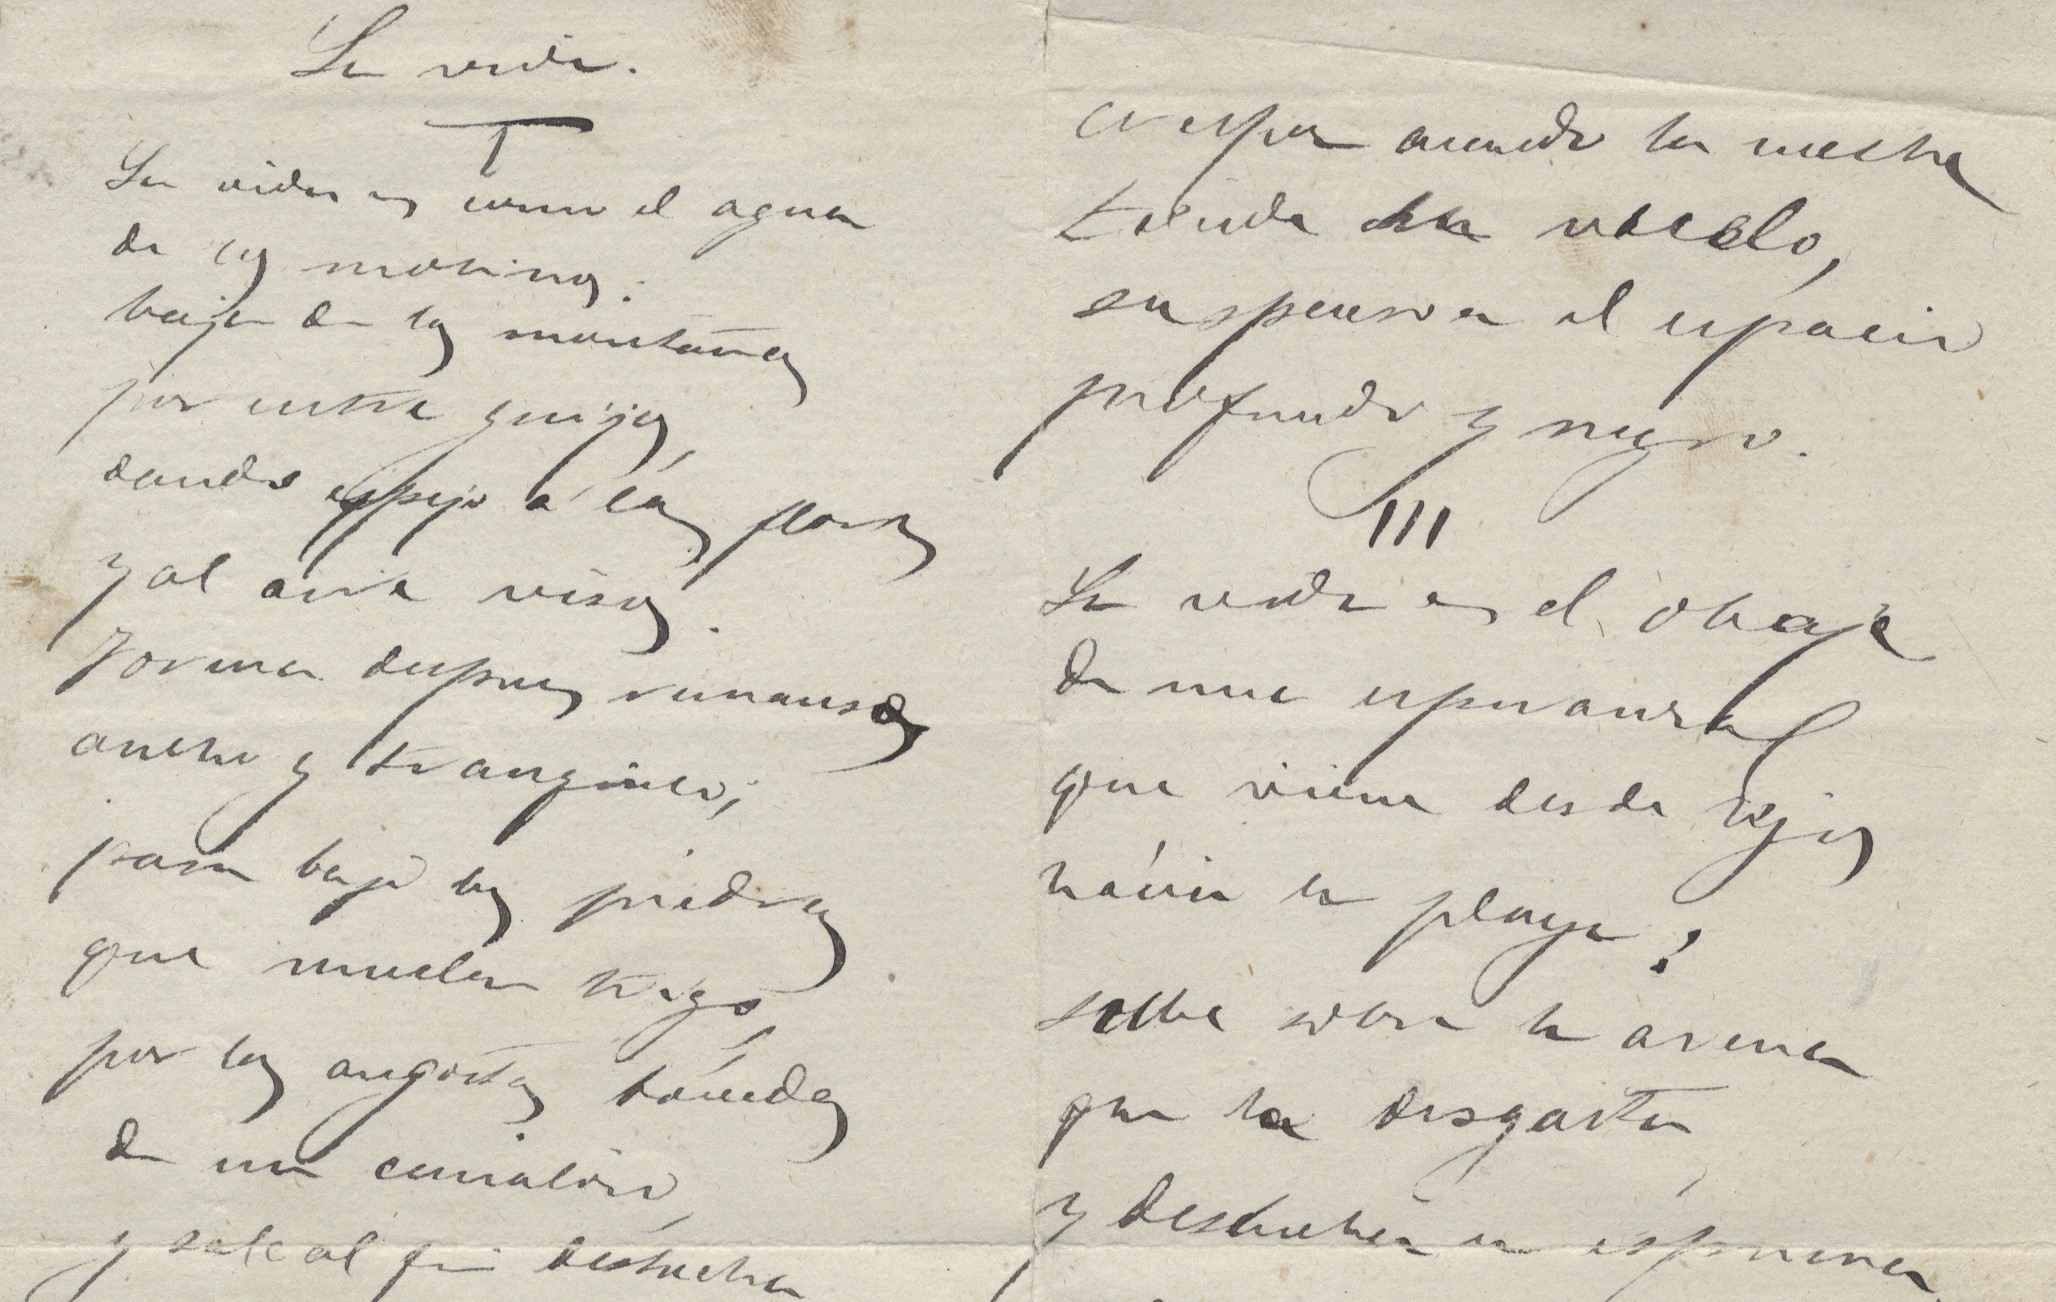 La vida.
I
La vida es como el agua
de los molinos:
baja de las montañas
por entre guijas,
dando espejo á las flores
y al aire visos.
Forma despues remansos
ancho y tranquilo;
pasa bajo las piedras
que muelen trigo,
por las angostas
de un
y sale al fin deshecha
cuando la
tiende su vuelo,
suspenso en el espacio
profundo y negro.
III
La vida es el oleaje
de una esperanza
que viene desde lejos
hácia la playa:
sube sobre la arena
que la desgasta,
y deshecha en espuma